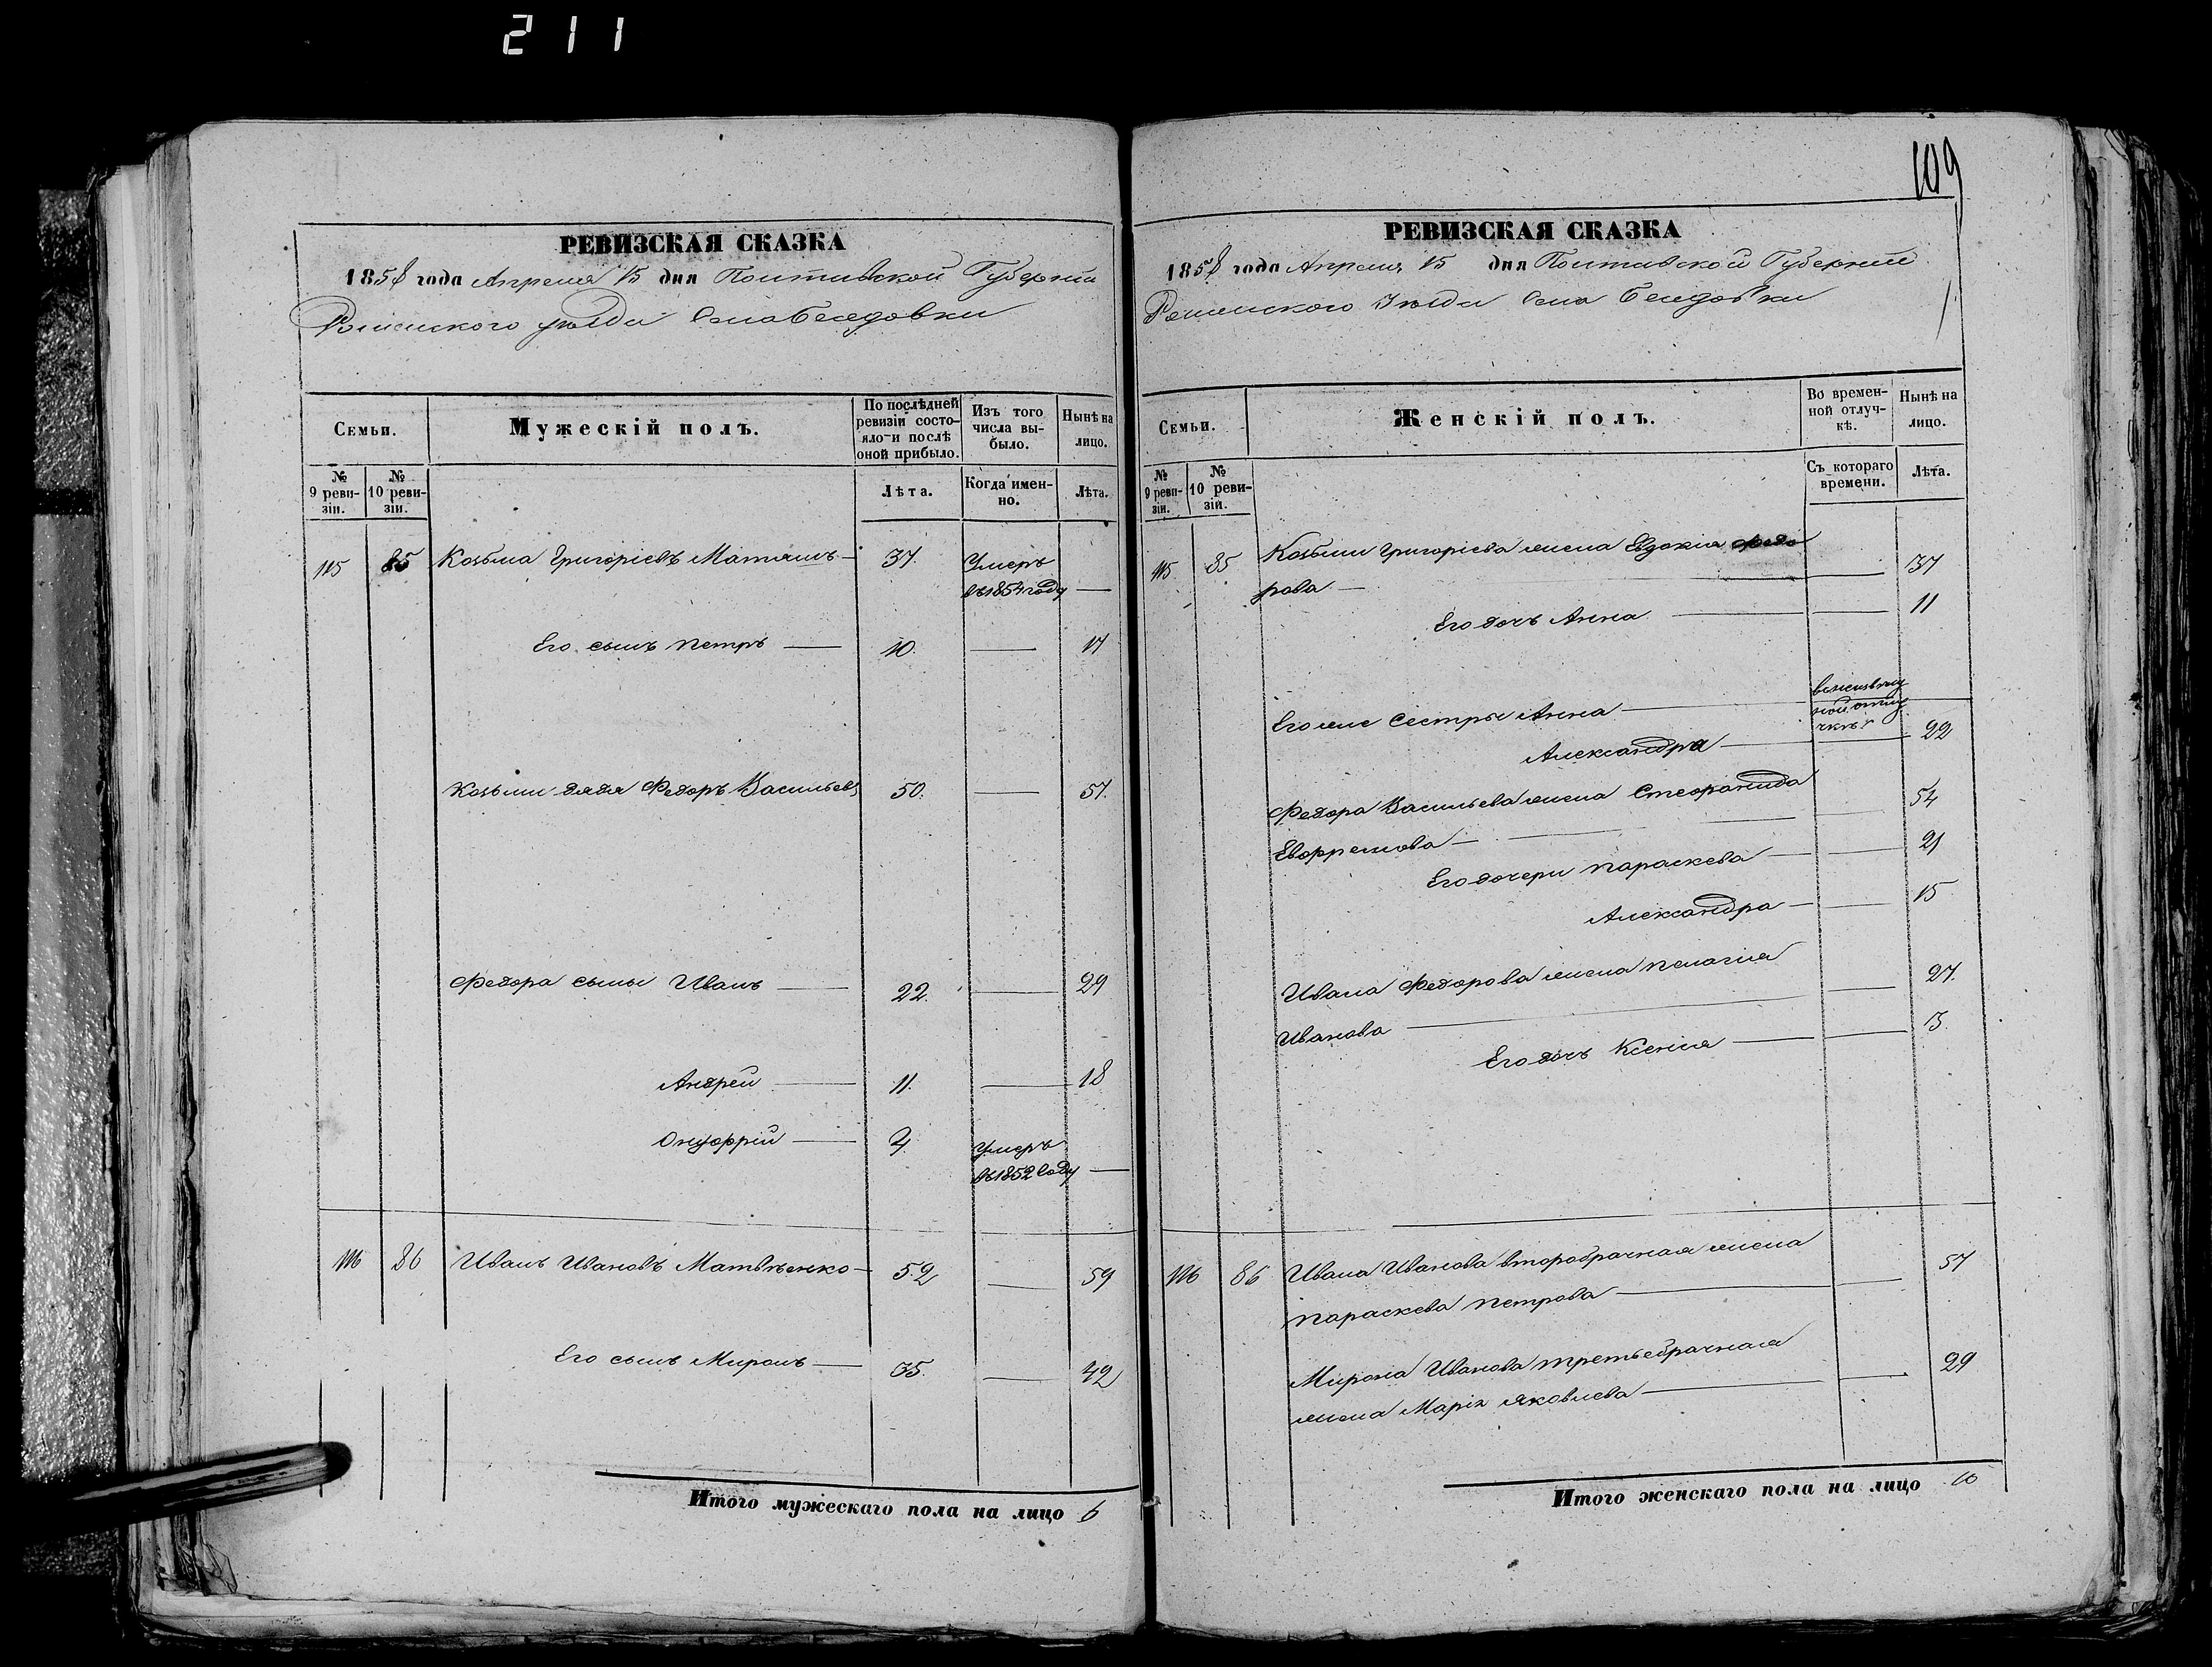 211
109
РЕВИЗСКАЯ СКАЗКА
1858 года Апреля 15 дня Полтавской Губерніи
Роменского уѣзда Села Беседовки
Семьи.
Мужескій полъ.
По послѣдней ревизіи состояло и послѣ оной прибыло.
Изъ того числа выбыло.
Нынѣ на лицо.
№ 9 ревизіи.
№ 10 ревизіи.
Лѣта.
Когда именно.
Лѣта.
115 85 Козьма Григорієвъ Матяшъ — 37. Умеръ
въ 1854 году —
Его сынъ Петръ — 10. — 17
Козьми дядя Федоръ Васильевъ 50. — 57.
Федора сыны Иванъ — 22. — 29
Андрей — 11. — 18
Онуфрій — 4. Умеръ
въ 1852 году —
116 86 Иванъ Ивановъ Матвѣенко — 52 — 59
Его сынъ Миронъ — 35. — 42
Итого мужескаго пола на лицо 6
РЕВИЗСКАЯ СКАЗКА
1858 года Апреля 15 дня Полтавской Губерніи
Роменского Уѣзда Села Беседовки
Семьи.
Женскій полъ.
Во временной отлучкѣ.
Нынѣ на лицо.
№ 9 ревизіи.
№ 10 ревизій.
Съ котораго времени.
Лѣта.
115 85 Козьми Григорієва жена Евдокія Федо
рова — — 37
Его дочь Анна — — 11
Его же сестры Анна —
Александра — — 22
Федора Васильева жена Стефанида
Евфремова — — 54
Его дочери Параскева — — 21
Александра — — 15
Ивана Федорова жена Пелагія
Иванова — — 27.
Его дочь Ксенія — — 3.
116 86 Ивана Иванова второбрачная жена
Параскева Петрова — — 57
Мирона Иванова третьебрачная
жена Марія Яковлева — — 29
Итого женскаго пола на лицо 10